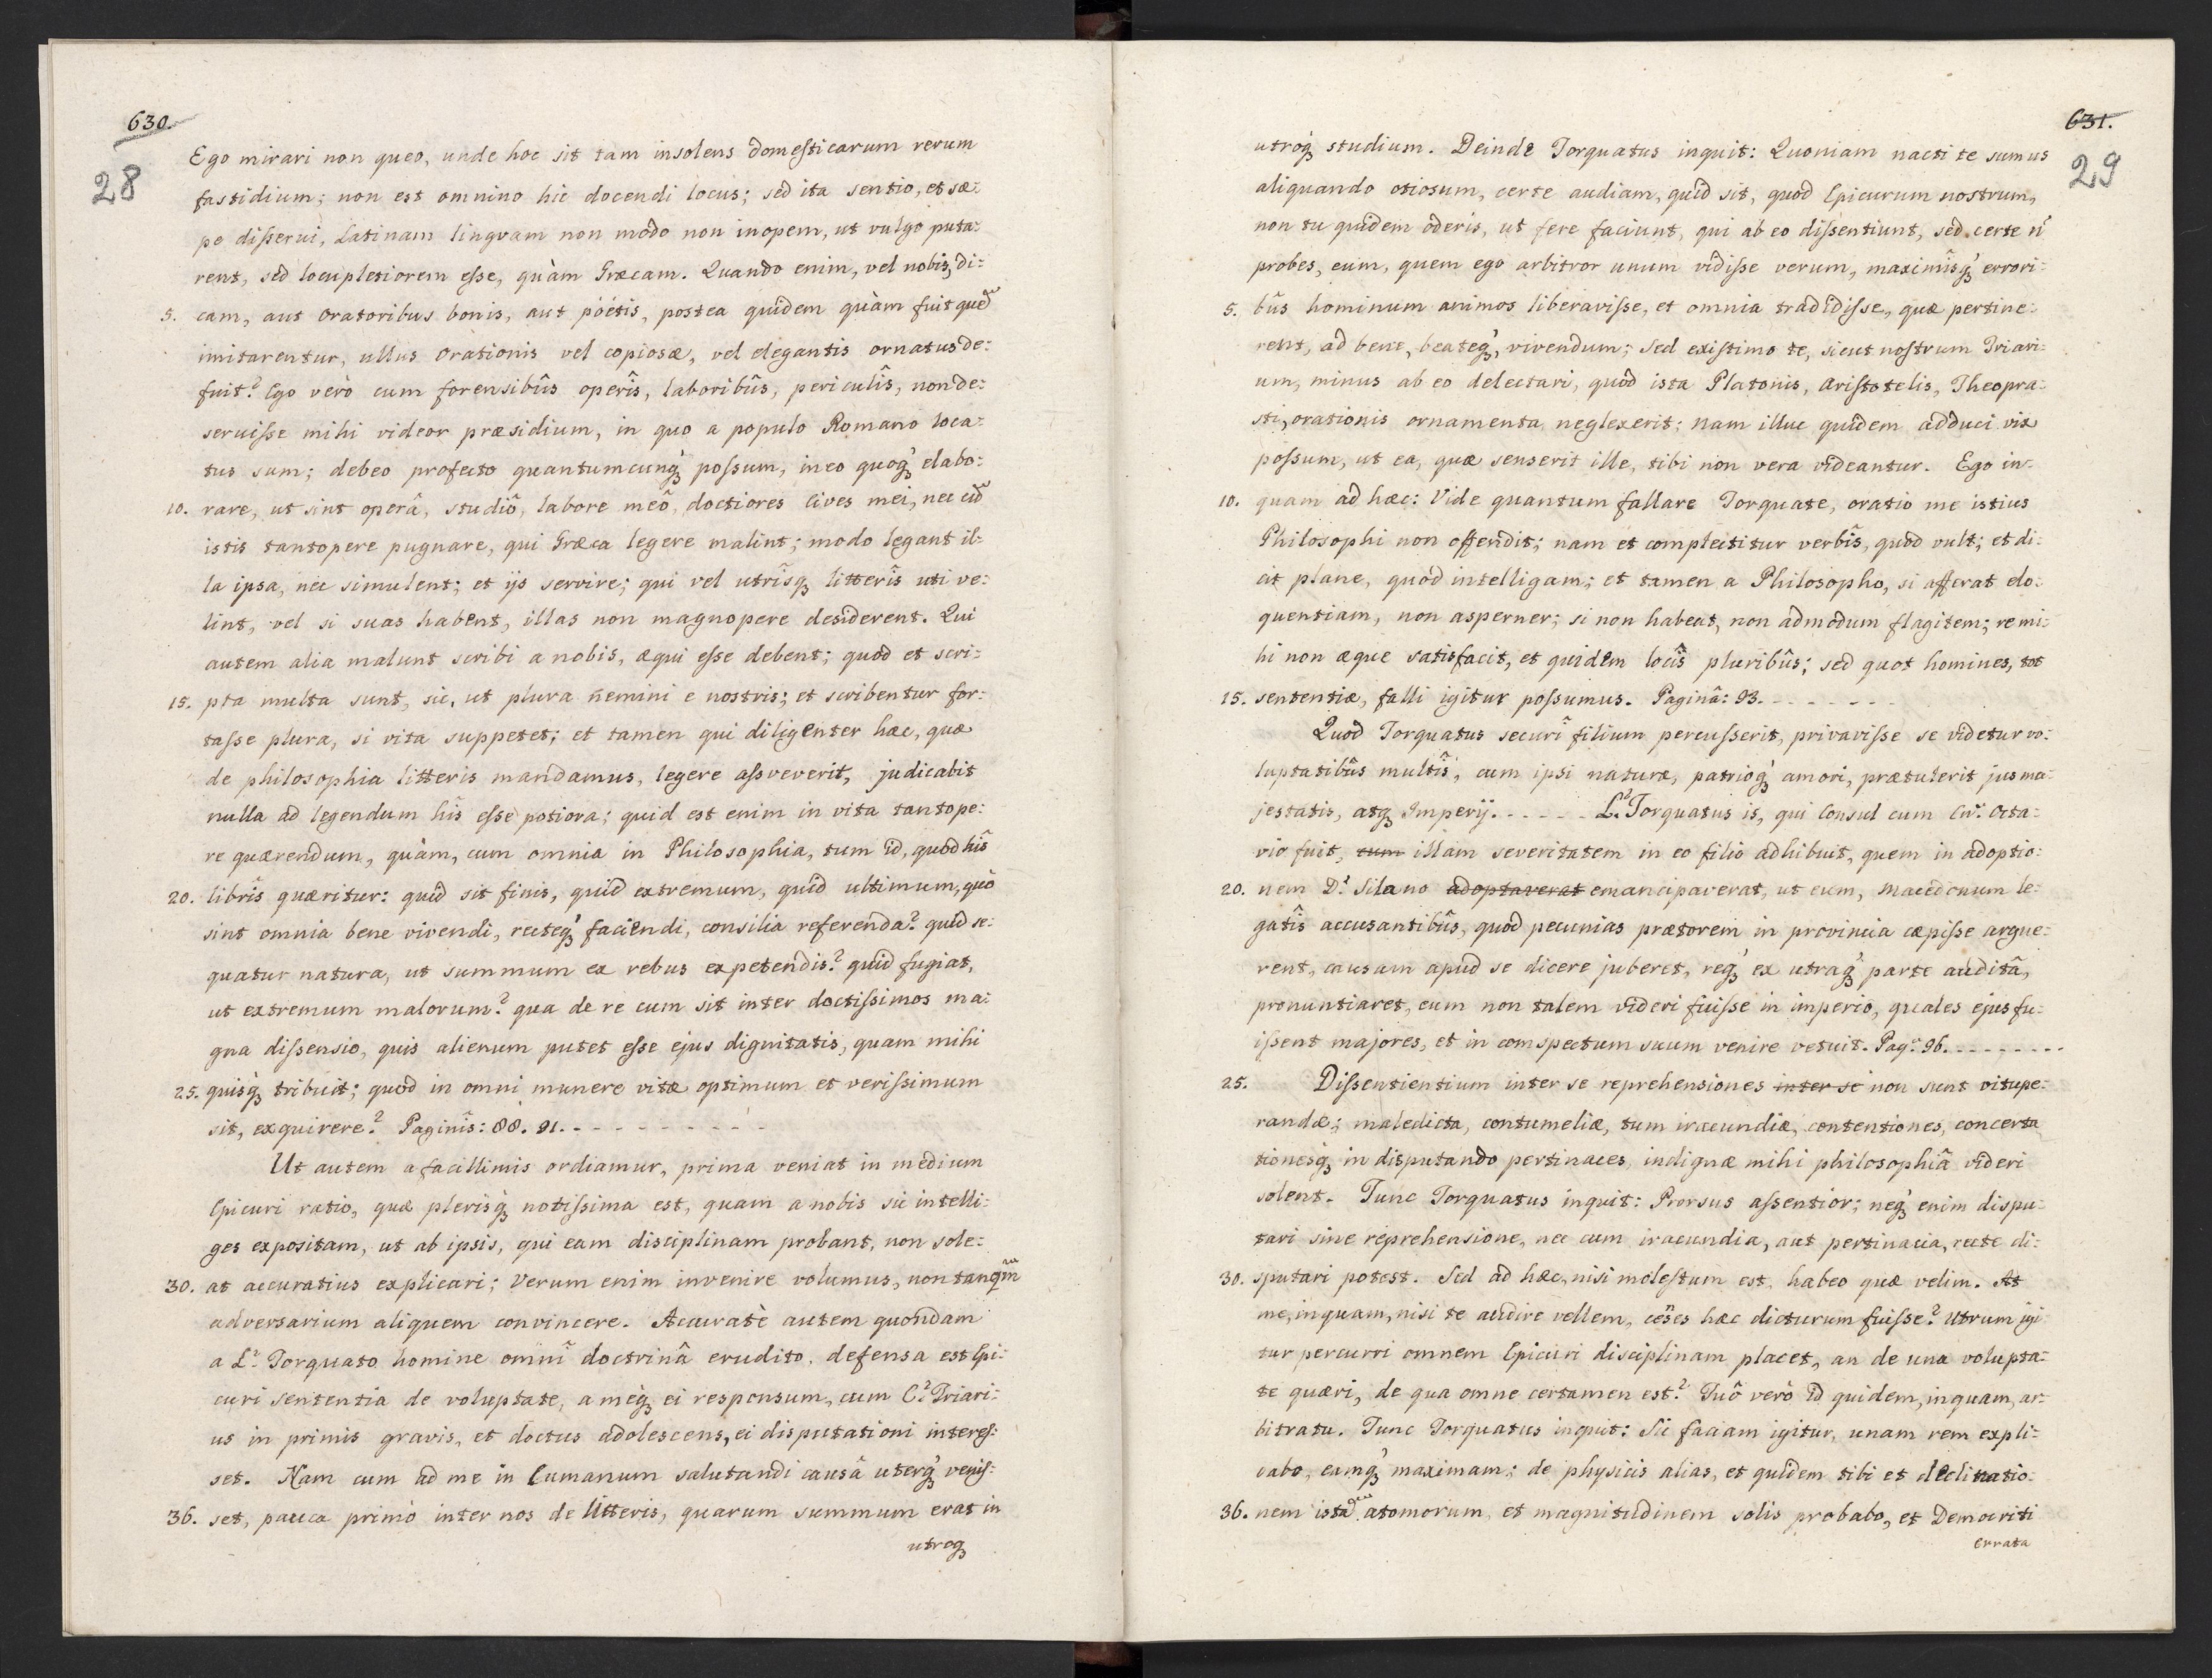 630.
28
Ego mirari non queo, unde hoc sit tam insolens domesticarum rerum
fastidium; non est omnino hic docendi locus; sed ita sentio, et sæ=
pe disserui, Latinam lingvam non modo non inopem, ut vulgo puta=
rent, sed locupletiorem esse, quàm Græcam. Quando enim, vel nobis, di=
5. cam, aut oratoribus bonis, aut poëtis, postea quidem quàm fuit quẽ
imitarentur, ullus orationis vel copiosæ, vel elegantis ornatus de=
fuit? Ego verò cum forensibûs operîs, laboribûs, periculîs, non de=
seruisse mihi videor præsidium, in quo a populo Romano loca=
tus sum; debeo profecto quantumcunqȝ possum, in eo quoqȝ elabo=
10. rare, ut sint operâ, studiô, labore meô, doctiores cives mei, nec cũ
istis tantopere pugnare, qui Græca legere malint; modo legant il=
la ipsa, nec simulent; et ijs servire; qui vel utrîsqȝ litterîs uti ve=
lint, vel si suas habent, illas non magnopere desiderent. Qui
autem alia malunt scribi a nobis, æqui esse debent; quod et scri=
15. pta multa sunt, sic, ut plura nemini e nostris; et scribentur for=
tasse plura, si vita suppetet; et tamen qui diligenter hæc, quæ
de philosophia litteris mandamus, legere assveverit, judicabit
nulla ad legendum hîs esse potiora; quid est enim in vita tantope=
re quærendum, quàm, cum omnia in Philosophia, tum id, quod hîs
20. librîs quæritur: quid sit finis, quid extremum, quid ultimum, quò
sint omnia bene vivendi, recteqȝ faciendi, consilia referenda? quid se=
quatur natura, ut summum ex rebus expetendis? quid fugiat,
ut extremum malorum? qua de re cum sit inter doctissimos ma=
gna dissensio, quis alienum putet esse ejus dignitatis, quam mihi
25. quisqȝ tribuit; quod in omni munere vitæ optimum et verissimum
sit, exquirere? Paginîs: 88. 91. - - - - - - - - - -
Ut autem a facillimis ordiamur, prima veniat in medium
Epicuri ratio, quæ plerisqȝ notissima est, quam a nobis sic intelli=
ges expositam, ut ab ipsis, qui eam disciplinam probant, non sole=
30. at accuratius explicari; Verum enim invenire volumus, non tanqm̃
adversarium aliquem convincere. Accuratè autem quondam
a L.º Torquato homine omnî doctrinâ erudito, defensa est Epi=
curi sententia de voluptate, a meqȝ ei responsum, cum C.º Triari=
us in primis gravis, et doctus adolescens, ei disputationi interes=
set. Nam cum ad me in Cumanum salutandi causâ uterqȝ venis=
36. set, pauca primò inter nos de litteris, quarum summum erat in
utroqȝ
631.
29
utroqȝ studium. Deinde Torquatus inquit: Quoniam nacti te sumus
aliquando otiosum, certe audiam, quid sit, quod Epicurum nostrum,
non tu quidem oderis, ut fere faciunt, qui ab eo dissentiunt, sed certe ñ
probes, eum, quem ego arbitror unum vidisse verum, maximîsqȝ errori=
5. bûs hominum animos liberavisse, et omnia tradidisse, quæ pertine=
rent, ad bene, beateqȝ, vivendum; sed existimo te, sicut nostrum Triari=
um, minus ab eo delectari, quod ista Platonis, Aristotelis, Theopra=
sti, orationis ornamenta neglexerit; nam illuc quidem adduci vix
possum, ut ea, quæ senserit ille, tibi non vera videantur. Ego in=
10. quam ad hæc: Vide quantum fallare Torquate, oratio me istius
Philosophi non offendit; nam et complectitur verbîs, quod vult; et di=
cit plane, quod intelligam; et tamen a Philosopho, si afferat elo=
quentiam, non asperner; si non habeat, non admodum flagitem; re mi=
hi non æque satisfacit, et quidem locîs pluribûs; sed quot homines, tot
15. sententiæ, falli igitur possumus. Paginâ: 93. - - - - - - -
Quod Torquatus securî filium percusserit, privavisse se videtur vo=
luptatibûs multîs, cum ipsi naturæ, patrioqȝ amori, prætulerit jus ma=
jestatis, atqȝ Imperij. - - - - - L.º Torquatus is, qui Consul cum Cn.º Octa=
vio fuit, ~~cum~~ illam severitatem in eo filio adhibuit, quem in adoptio=
20. nem D.º Silano ~~adoptaverat~~ emancipaverat, ut eum, Macedonum le=
gatîs accusantibûs, quod pecunias prætorem in provincia cæpisse argue=
rent, causam apud se dicere juberet, reqȝ ex utraqȝ parte auditâ,
pronuntiaret, eum non talem videri fuisse in imperio, quales ejus fu=
issent majores, et in comspectum suum venire vetuit. Pag.ª 96. - - - - - - - -
25. Dissentientium inter se reprehensiones ~~inter se~~ non sunt vitupe=
randæ; maledicta, contumeliæ, tum iracundiæ, contentiones, concerta
tionesqȝ in disputando pertinaces, indignæ mihi philosophiâ videri
solent. Tunc Torquatus inquit: Prorsus assentior; neqȝ enim dispu=
tari sine reprehensione, nec cum iracundia, aut pertinacia, recte di=
30. sputari potest. Sed ad hæc, nisi molestum est, habeo quæ velim. At
me, inquam, nisi te audire vellem, cẽses hæc dicturum fuisse? Utrum igi
tur percurri omnem Epicuri disciplinam placet, an de una volupta=
te quæri, de qua omne certamen est? Tuô verò id quidem, inquam, ar=
bitratu. Tunc Torquatus inquit: Sic faciam igitur, unam rem expli=
cabo, eamqȝ maximam; de physicis alias, et quidem tibi et declinatio=
36. nem istã atomorum, et magnitudinem solis probabo, et Democriti
errata